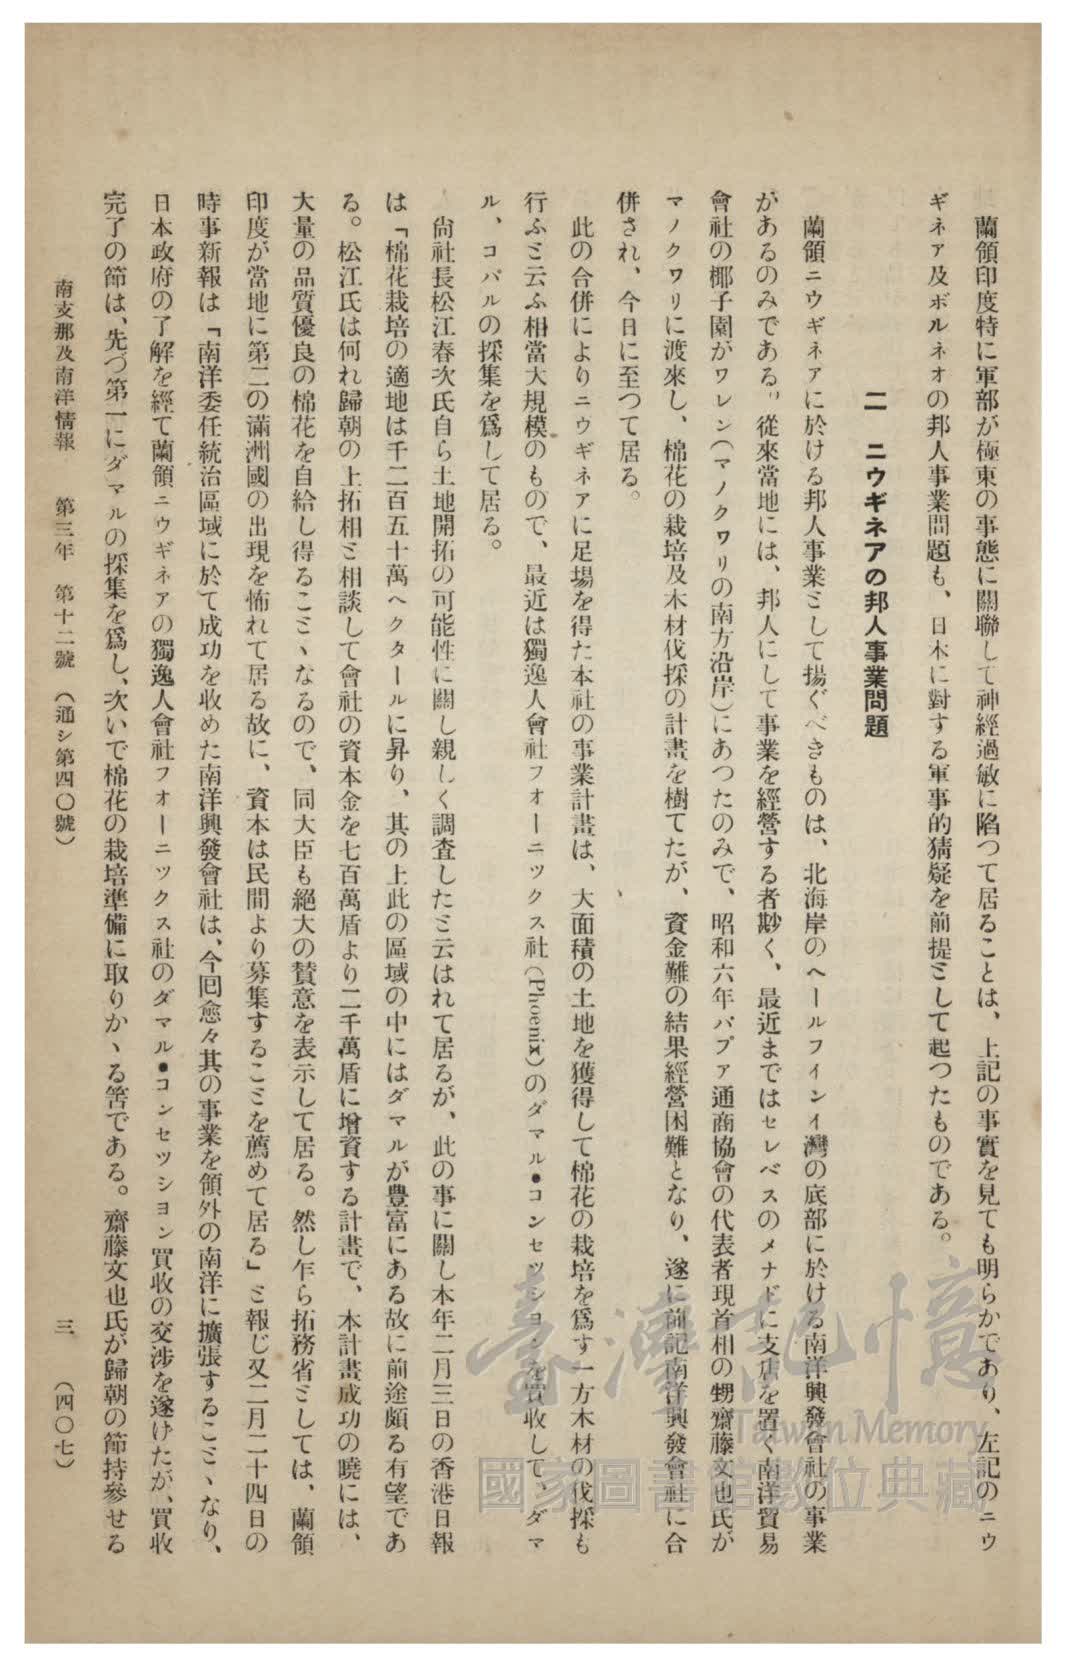 蘭領印度特に軍部が極東の事態に關聯して神經過敏に陷つて居ることは、上記の事實を見ても明らかであり、左記のニウ
ギネア及ボルネオの邦人事業問題も、日本に對する軍事的猜疑を前提ミして起つたものである。
二　ニウギネアの邦人事業問題
蘭領ニウギネアに於ける邦人事業ミして揚ぐべきものは、北海岸のヘールフインイ灣の底部に於ける南洋興發會社の事業
があるのみである。從來當地には、邦人にして事業を經營する者尠く、最近まではセレベスのメナドに支店を置く南洋貿易
會社の椰子園がワレン(マノクワリの南方沿岸)にあつたのみで、昭和六年パプア通商協會の代表者現首相の甥齋藤文也氏が
マノクワリに渡來し、棉花の栽培及木材伐採の計畫を樹てたが、資金難の結果經營困難となり、遂に前記南洋興發會社に合
併され、今日に至つて居る。
此の合併によりニウギネアに足場を得た本社の事業計畫は、大面積の土地を獲得して棉花の栽培を爲す一方木材の伐採も
行ふミ云ふ相當大規模のもので、最近は獨逸人會社フオーニツクス社(Phoenix)のダマル●コンセツシヨンを買收して、ダマ
ル、コバルの採集を爲して居る。
尙社長松江春次氏自ら土地開拓の可能性に關し親しく調査したミ云はれて居るが、此の事に關し本年二月三日の香港日報
は「棉花栽培の適地は千二百五十萬ヘクタールに昇り、其の上此の區域の中にはダマルが豊富にある故に前途頗る有望であ
る。松江氏は何れ歸朝の上拓相ミ相談して會社の資本金を七百萬盾より二千萬盾に增資する計畫で、本計畫成功の曉には、
大量の品質優良の棉花を自給し得るこミヽなるので、同大臣も絕大の贊意を表示して居る。然し乍ら拓務省ミしては、蘭領
印度が當地に第二の滿洲國の出現を怖れて居る故に、資本は民間より募集するこミを薦めて居る」ミ報じ又二月二十四日の
時事新報は「南洋委任統治區域に於て成功を收めた南洋興發會社は、今囘愈々其の事業を領外の南洋に擴張するこミヽなり、
日本政府の了解を經て蘭領ニウギネアの獨逸人會社フオーニツクス社のダマル●コンセツシヨン買收の交涉を遂げたが、買收
完了の節は、先づ第一にダマルの採集を爲し、次いで棉花の栽培準備に取りかゝる筈である。齋藤文也氏が歸朝の節持參せる
南支那及南洋情報　第三年　第十二號　(通シ第四〇號)　三　(四〇七)
臺灣記憶
Taiwan Memory
國家圖書館數位典藏